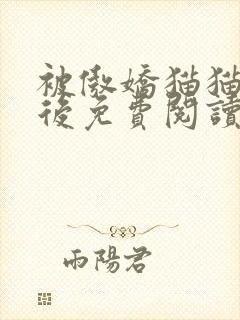 被傲嬌猫猫
後免費閱讀
雨陽君